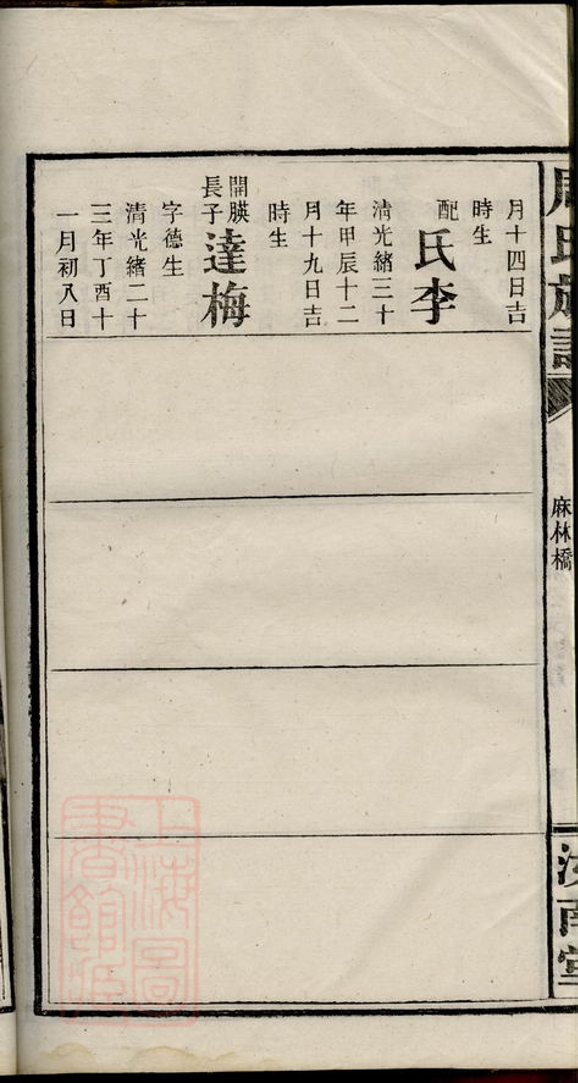 周氏族譜
麻林橋
汝南堂
月十四日吉
時生
配
氏李
清光緒三十
年甲辰十二
月十九日吉
時生
開朠
長子
達梅
字德生
清光緒二十
三年丁酉十
一月初八日
上海圖
書館藏